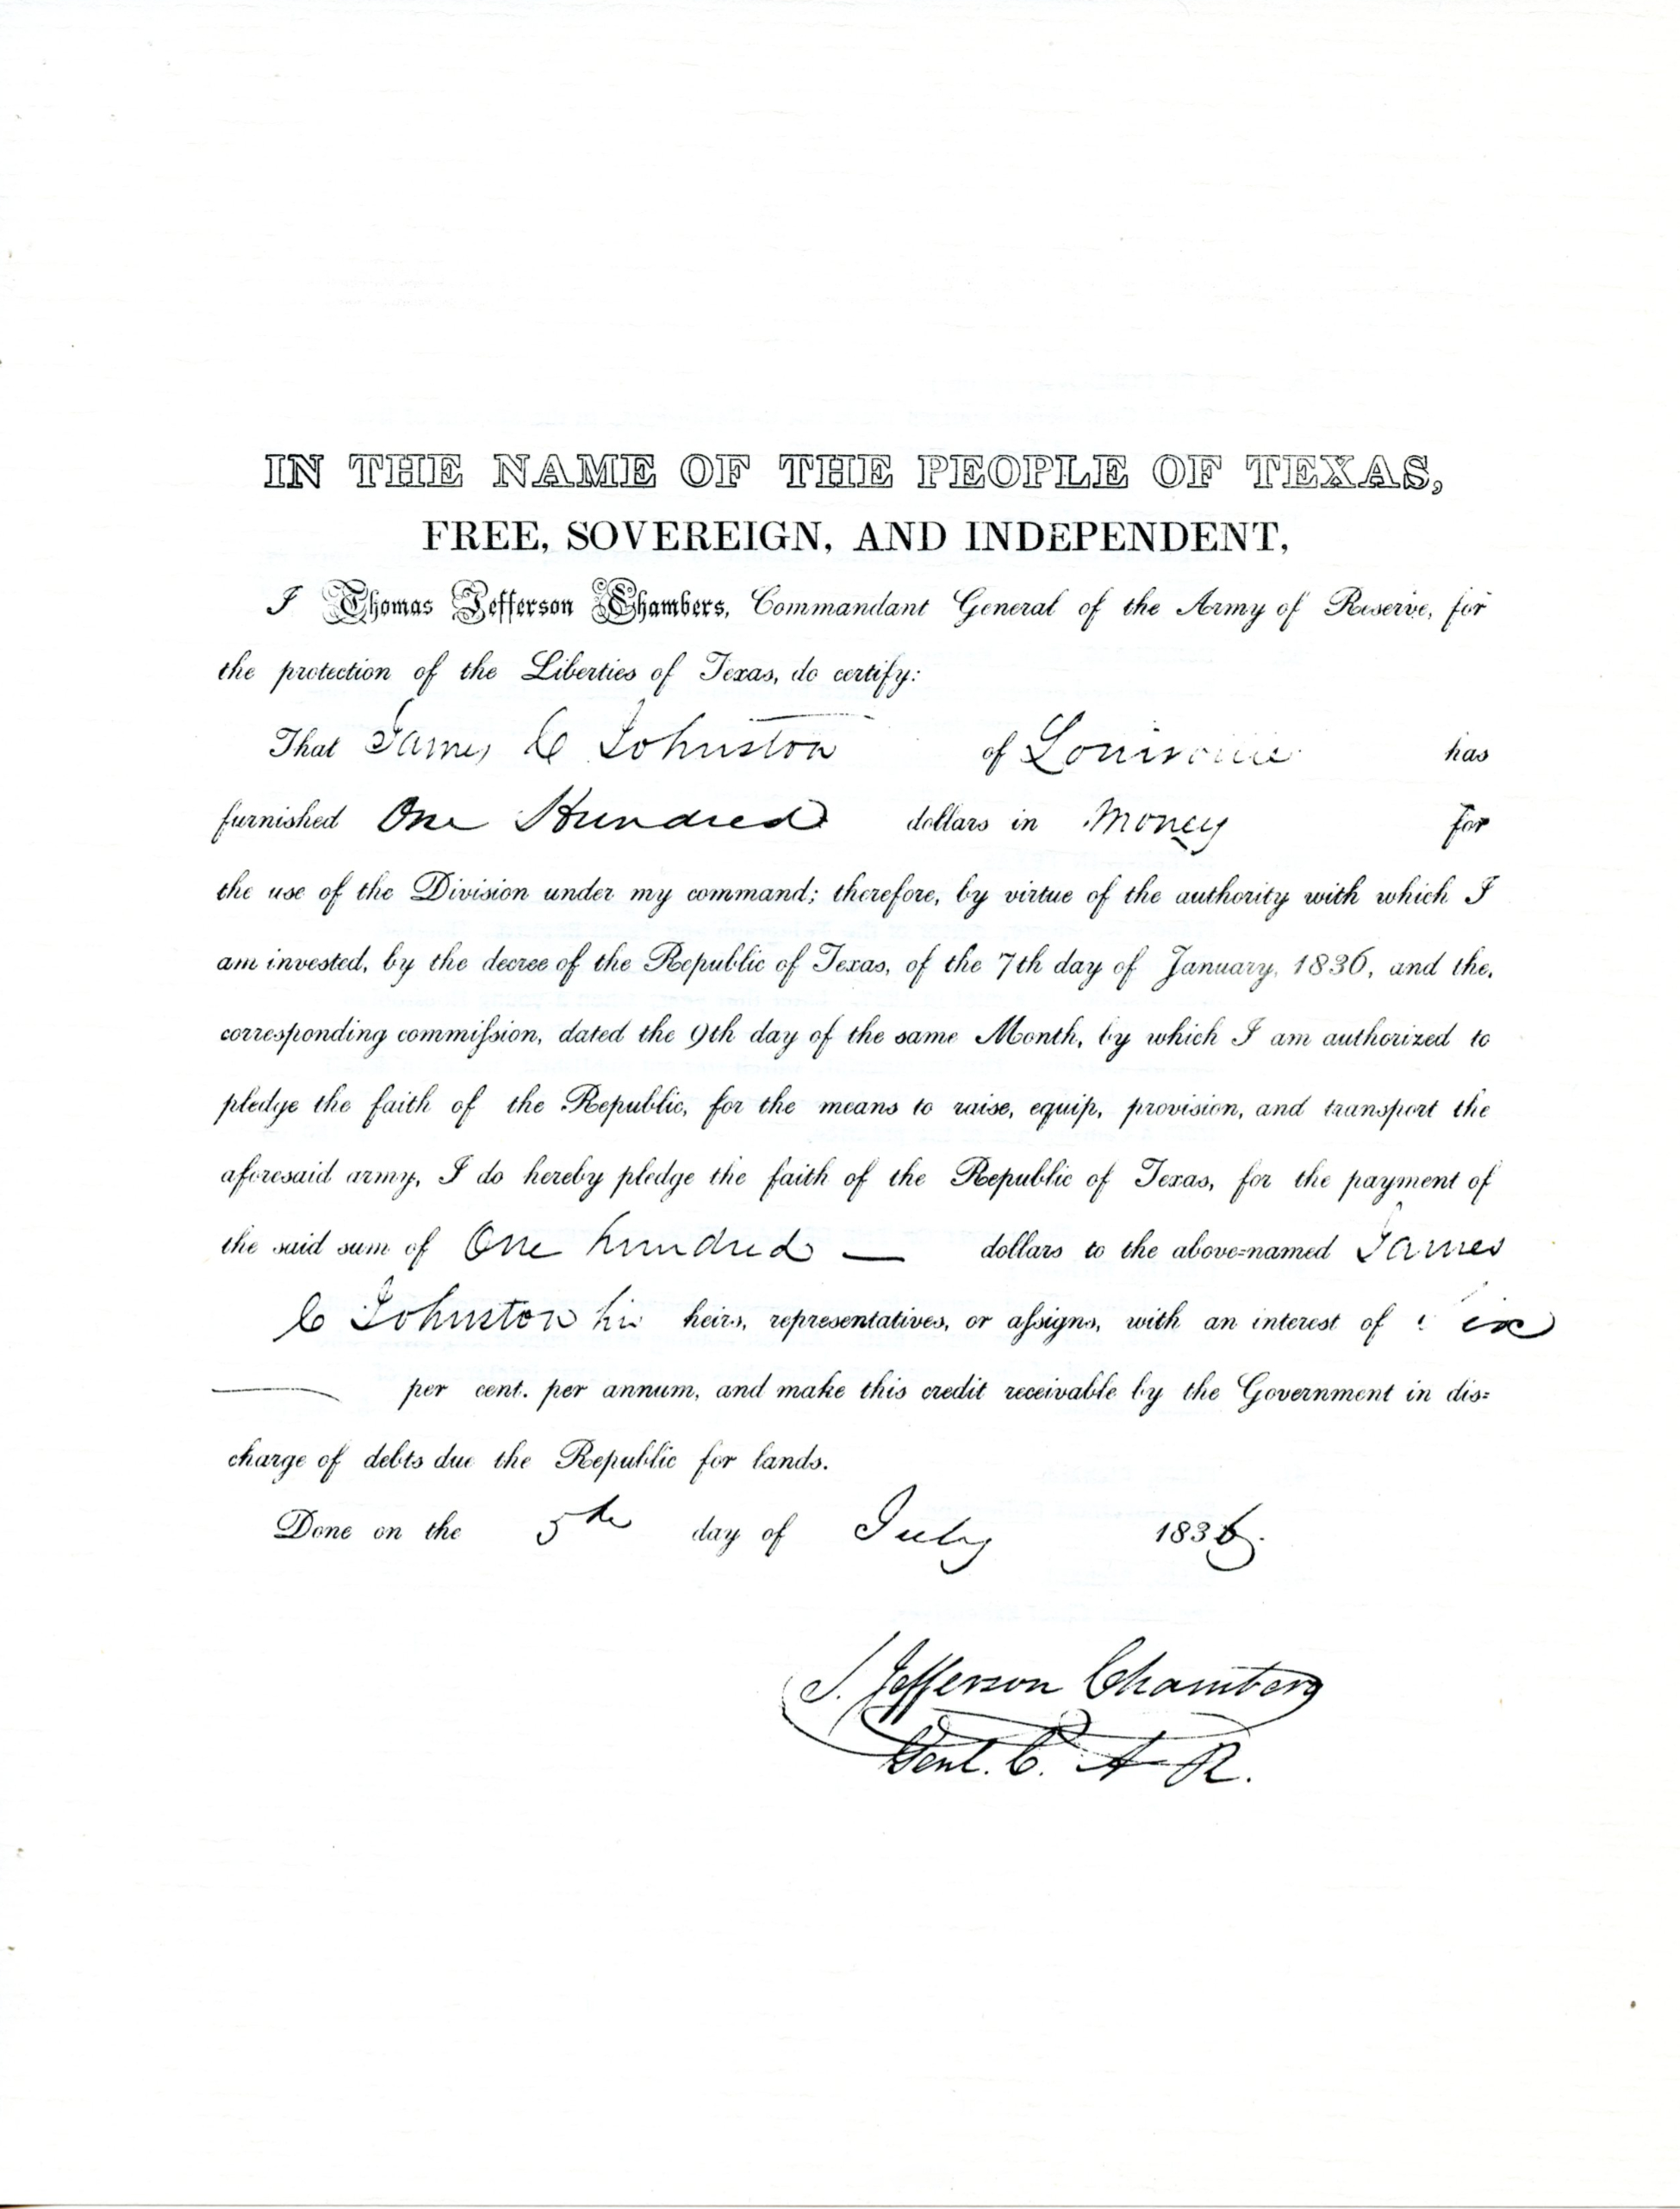 IN THE NAME OF THE PEOPLE OF TEXAS,
FREE, SOVEREIGN, AND INDEPENDENT,
I Thomas Jefferson Chambers, Commandant General of the Army of Reserve, for
the protection of the Liberties of Texas, do certify:
That James C Johnston of Louisville has
furnished One Hundred dollars in Money for
the use of the Division under my command; therefore, by virtue of the authority with which I
am invested, by the decree of the Republic of Texas, of the 7th day of January, 1836, and the
corresponding commiſsion, dated the 9th day of the same Month, by which I am authorized to
pledge the faith of the Republic, for the means to raise, equip, provision, and transport the
aforesaid army, I do hereby pledge the faith of the Republic of Texas, for the payment of
the said sum of One hundred — dollars to the above=named James
C Johnston his heirs, representatives, or aſsigns, with an interest of six
— per cent. per annum, and make this credit receivable by the Government in dis=
charge of debts due the Republic for lands.
Done on the 5th day of July 1836.
T. Jefferson Chambers
Genl. C. A R.